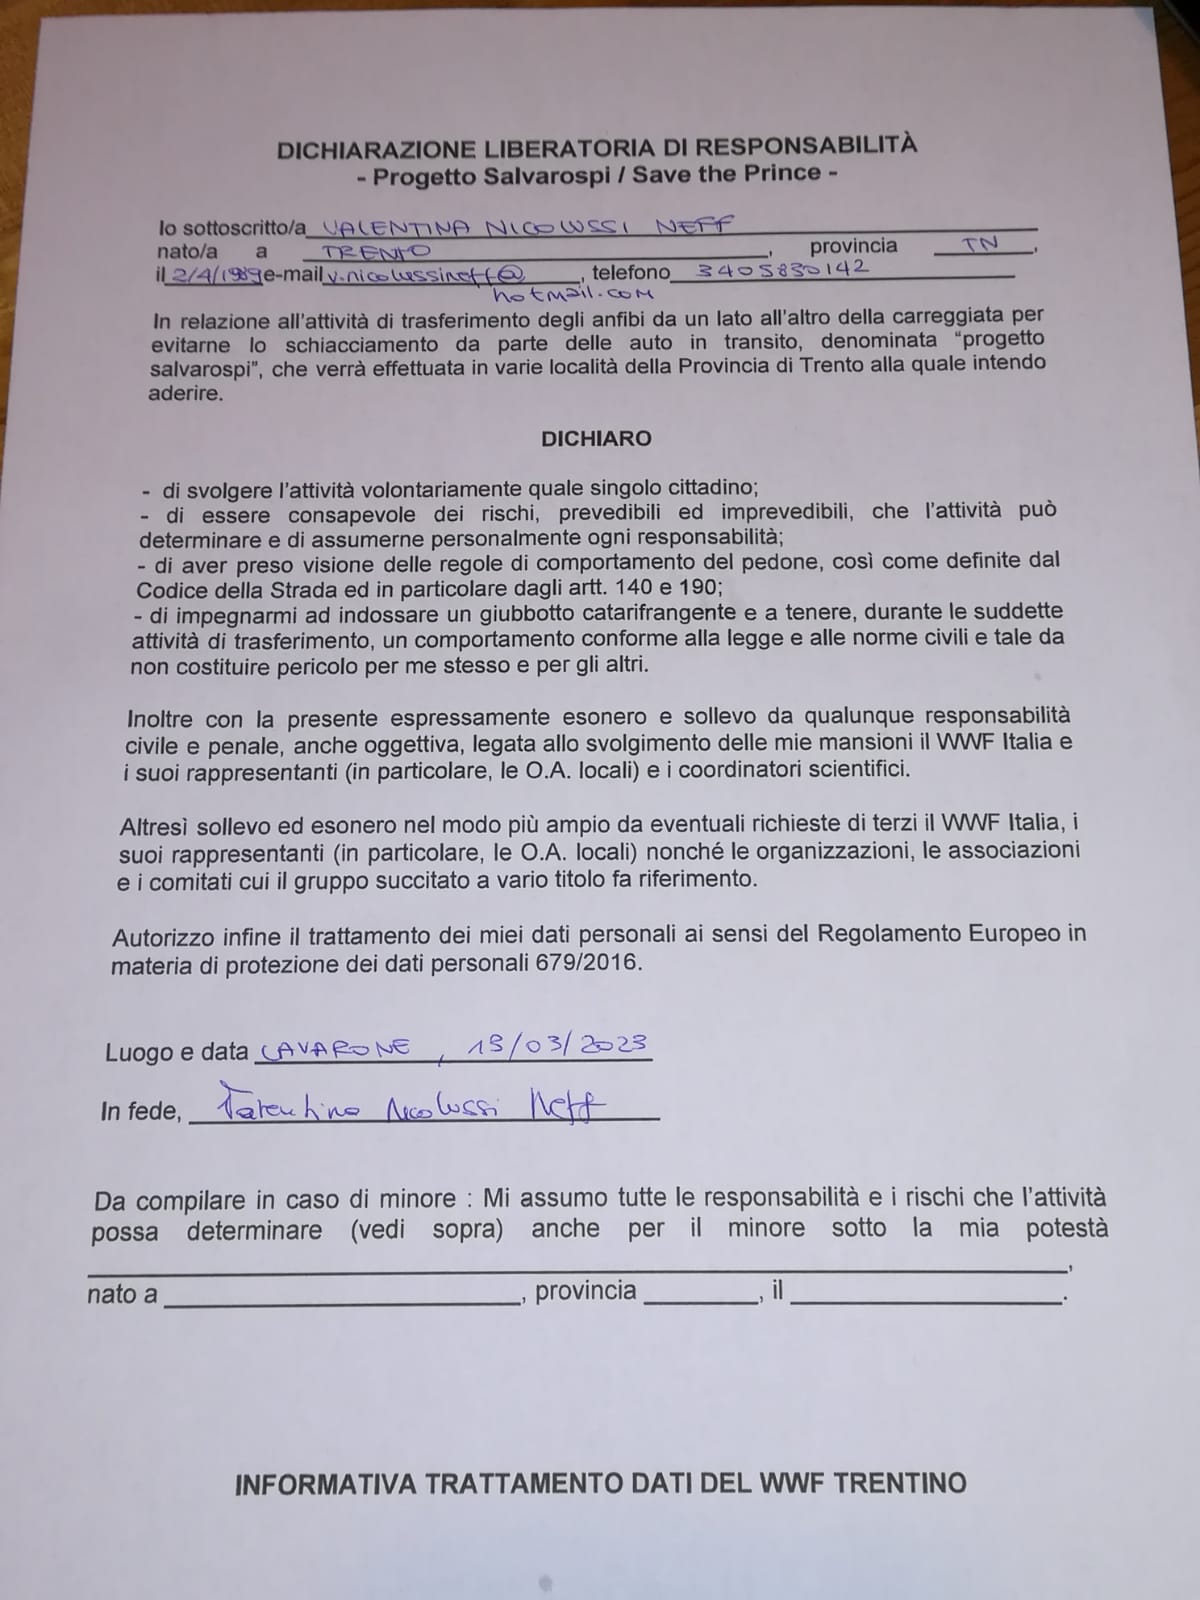 DICHIARAZIONE LIBERATORIA DI RESPONSABILITÀ
- Progetto Salvarospi / Save the Prince -
Io sottoscritto/a VALENTINA NICOLUSSI NEFF
nato/a a TRENTO, provincia TN,
il 2/4/1989 e-mail v.nicolussineff@, telefono 3405830142
hotmail.com
In relazione all'attività di trasferimento degli anfibi da un lato all'altro della carreggiata per
evitarne lo schiacciamento da parte delle auto in transito, denominata "progetto
salvarospi", che verrà effettuata in varie località della Provincia di Trento alla quale intendo
aderire.
DICHIARO
- di svolgere l'attività volontariamente quale singolo cittadino;
- di essere consapevole dei rischi, prevedibili ed imprevedibili, che l'attività può
determinare e di assumerne personalmente ogni responsabilità;
- di aver preso visione delle regole di comportamento del pedone, così come definite dal
Codice della Strada ed in particolare dagli artt. 140 e 190;
- di impegnarmi ad indossare un giubbotto catarifrangente e a tenere, durante le suddette
attività di trasferimento, un comportamento conforme alla legge e alle norme civili e tale da
non costituire pericolo per me stesso e per gli altri.
Inoltre con la presente espressamente esonero e sollevo da qualunque responsabilità
civile e penale, anche oggettiva, legata allo svolgimento delle mie mansioni il WWF Italia e
i suoi rappresentanti (in particolare, le O.A. locali) e i coordinatori scientifici.
Altresì sollevo ed esonero nel modo più ampio da eventuali richieste di terzi il WWF Italia, i
suoi rappresentanti (in particolare, le O.A. locali) nonché le organizzazioni, le associazioni
e i comitati cui il gruppo succitato a vario titolo fa riferimento.
Autorizzo infine il trattamento dei miei dati personali ai sensi del Regolamento Europeo in
materia di protezione dei dati personali 679/2016.
Luogo e data LAVARONE, 19/03/2023
In fede, Valentina Nicolussi Neff
Da compilare in caso di minore : Mi assumo tutte le responsabilità e i rischi che l'attività
possa determinare (vedi sopra) anche per il minore sotto la mia potestà
,
nato a , provincia , il .
INFORMATIVA TRATTAMENTO DATI DEL WWF TRENTINO